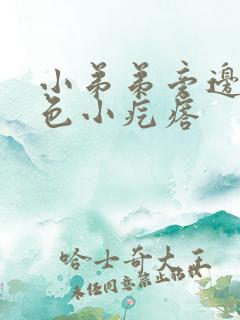 小弟弟旁边
色小疙瘩
哈士奇大王
未经同意禁止转载